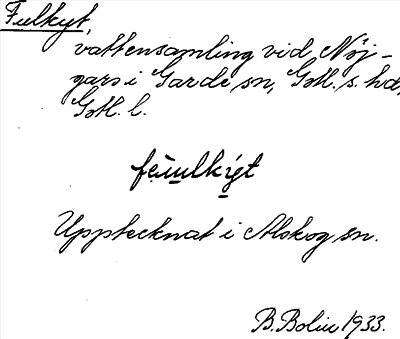 Fulkyt,
vattensamling vid Nöj-
gars i Garde sn, Gotl. s. hd,
Gotl. l.
feu̅ulkyt
Upptecknat i Alskog sn.
B. Bolin 1933.